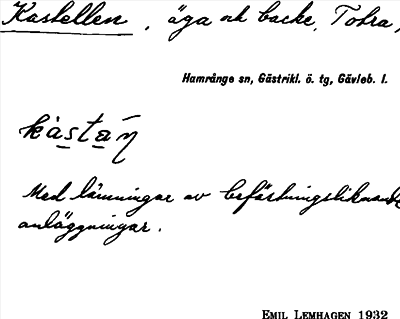 Kastellen, äga och backe, Totra,
Hamrånge sn, Gästrikl. ö. tg, Gävleb. l.
Med lämningar av befästningsliknande
anläggningar.
EMIL LEMHAGEN 1932